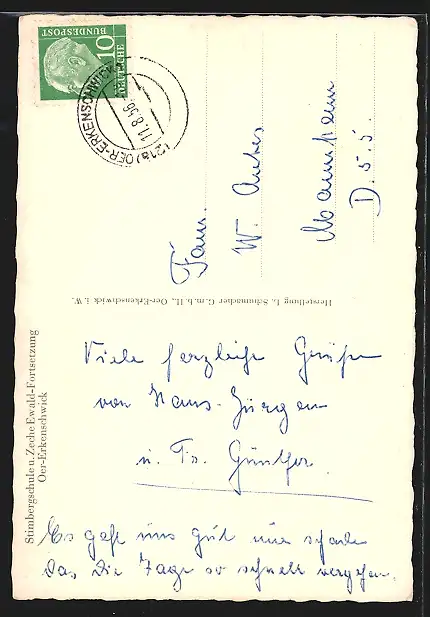 DEUTSCHE
BUNDESPOST
10
(21a) OER-ERKENSCHWICK
11.8.56
Fam.
W. Ankes
Mannheim
D. 5. 5.
Herstellung L. Schumacher G.m.b.H., Oer-Erkenschwick i. W.
Stimbergschule u. Zeche Ewald-Fortsetzung
Oer-Erkenschwick
Viele herzliche Grüße
von Hans-Jürgen
u. Günther
Es geht uns gut nur schade
das die Tage so schnell vergehen.